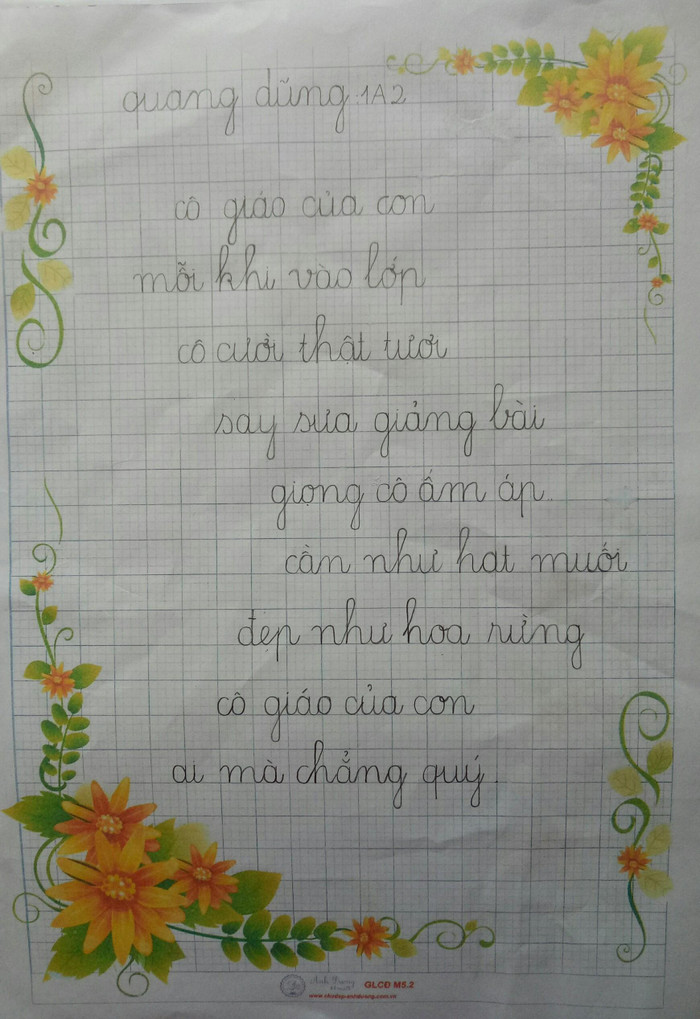 quang dũng 1A2
cô giáo của con
mỗi khi vào lớp
cô cười thật tươi
say sưa giảng bài
giọng cô ấm áp.
cần như hạt muối
đẹp như hoa rừng
cô giáo của con
ai mà chẳng quý.
Ánh Dương
GLCĐ M5.2